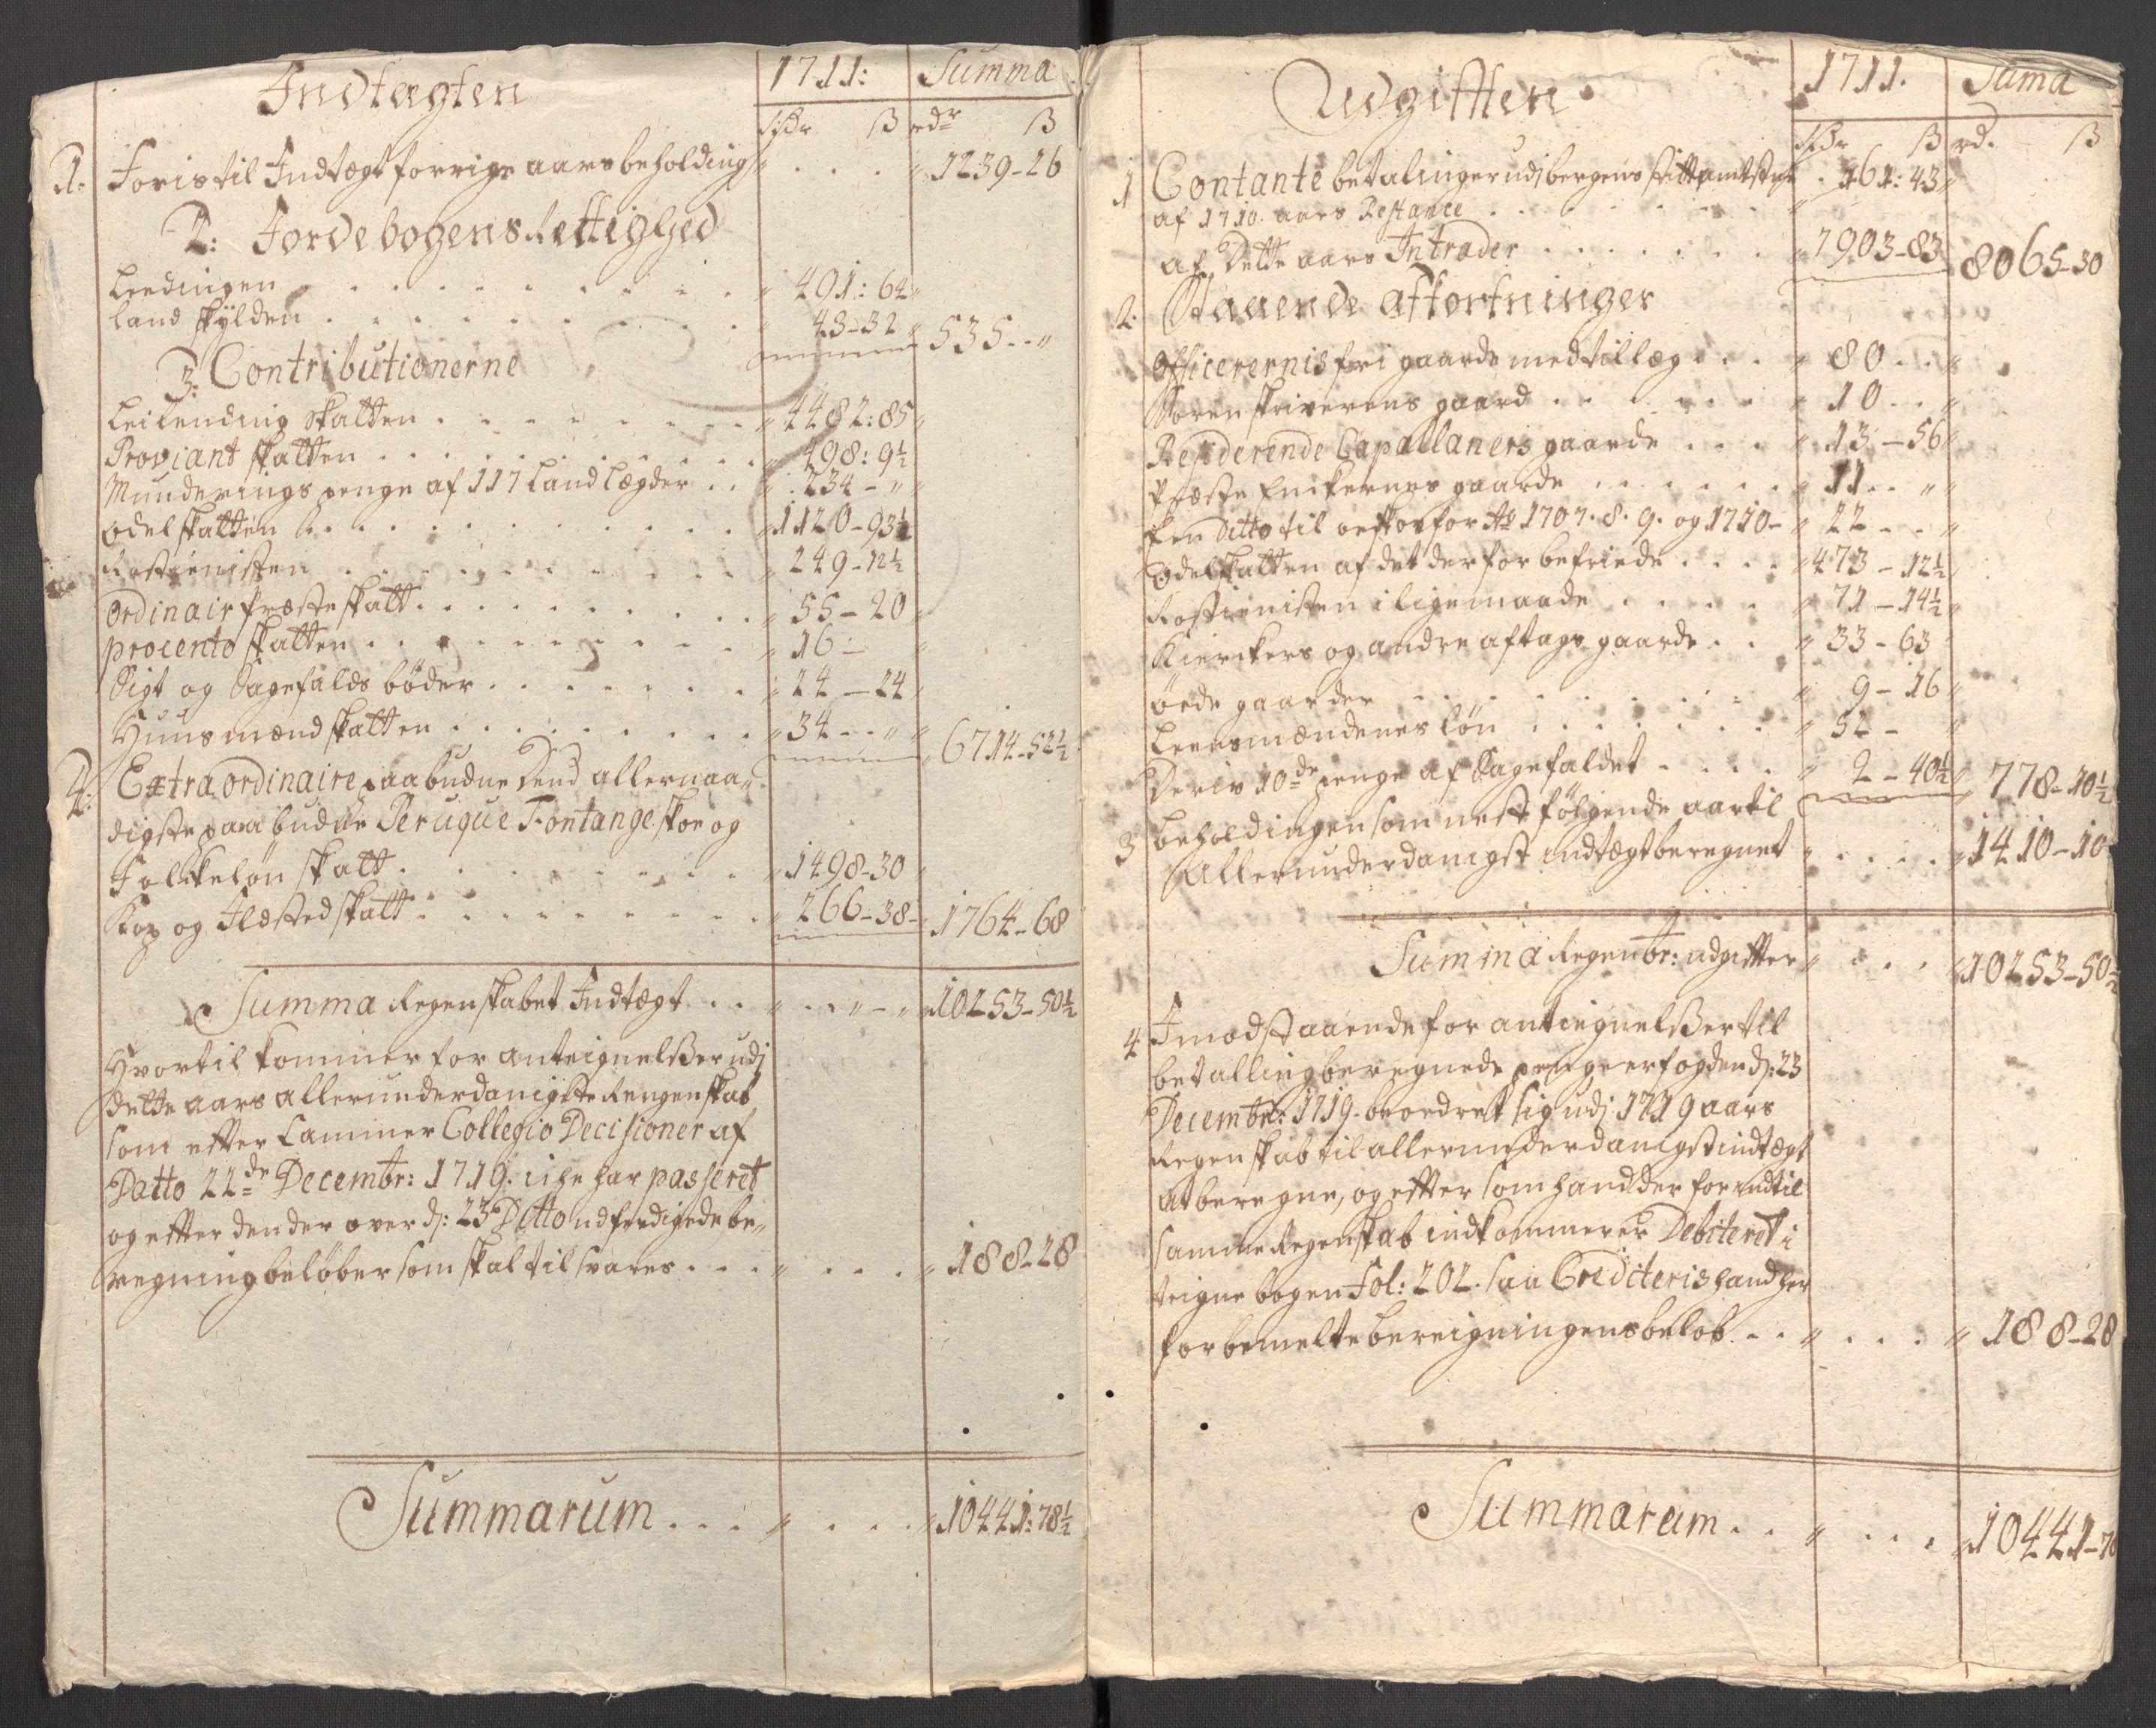 Indtægten 1711: Summa
rdr ß rdr ß
1. Føris til Indtægt forrige aars beholding 1239-26
2: Jordebogens Rettighed
Leedingen 491:64
Land skÿlden 43-32 535
3. Contributionerne
Leilending skatten 4482:85
Proviant skatten 498:9½
Munderings penge af 117 Land Lægder 234
odel skatten 1120-93½
Rostienisten 249-12½
Ordinair Præste skatt 55-20
procento skatten 16
Sigt og Sagefalds bøder 24-24
Huusmænd skatten 34 6714-52½
4: Extraordinaire paabudne Send allernaa-
digste paabudne Peruque Fontange skoe og
Folckeløn skatt 1498-30
Kop og Ildsted skatt 266-38 1764-68
Summa Regenskabet Indtægt 10253-50½
Hvortil kommer for anteignelsßer udj
dette aars allerunderdanigste Regenskab
som efter Cammer Collegio Decisioner af
Datto 22de Decembr: 1719. iche har passeret
og efter den der over d: 23 Ditto udferdigede be-
regning beløber som skal tilsvares 188-28
Summarum 10441:78½
Udgifften 1711. Suma
rdr ß rd. ß
1 Contante betalinger udj bergens stiftamtstue
af 1710. aars Restance 161:43
af Dette aars Intrader 7903-83 8065-30
2. Staaende afkortninger
Officerernis fri gaarde med tillæg 80
Sorenskriverens gaard 10
Residerende Capallaners gaarde 13-56
Præste Enckernes gaarde 11
En Ditto til for Ao 1707. 8. 9. og 1710 22
Odelskatten af det der for befriede 473-12½
Rostienisten i ligemaade 71-14½
Kierckers og andre aftags gaarde 33-63
øede gaarder 9-16
Leensmændenes løn 52
Deriv 10de penge af Sagefaldet 2-40½ 778-10½
3 beholdingen som nest følgende aar til
Allerunderdanigst indtægt beregnet 1410-10
Summa Regenbr: udgifter 10253-50½
4 Imod staaende for antiegnelsßer til
betalling beregnede penge er fogden d: 23
Decembr: 1719. beordret sig udj 1719 aars
Regenskab til allerunderdanigst indtægt
at beregne, og efter som hand der for ind til
samme Regenskab indkommer er Debiteret i
teigne bogen Fol: 202. saa Crediteris hand her
for bemelte bereigningens beløb 188-28
Summarum 10441-78